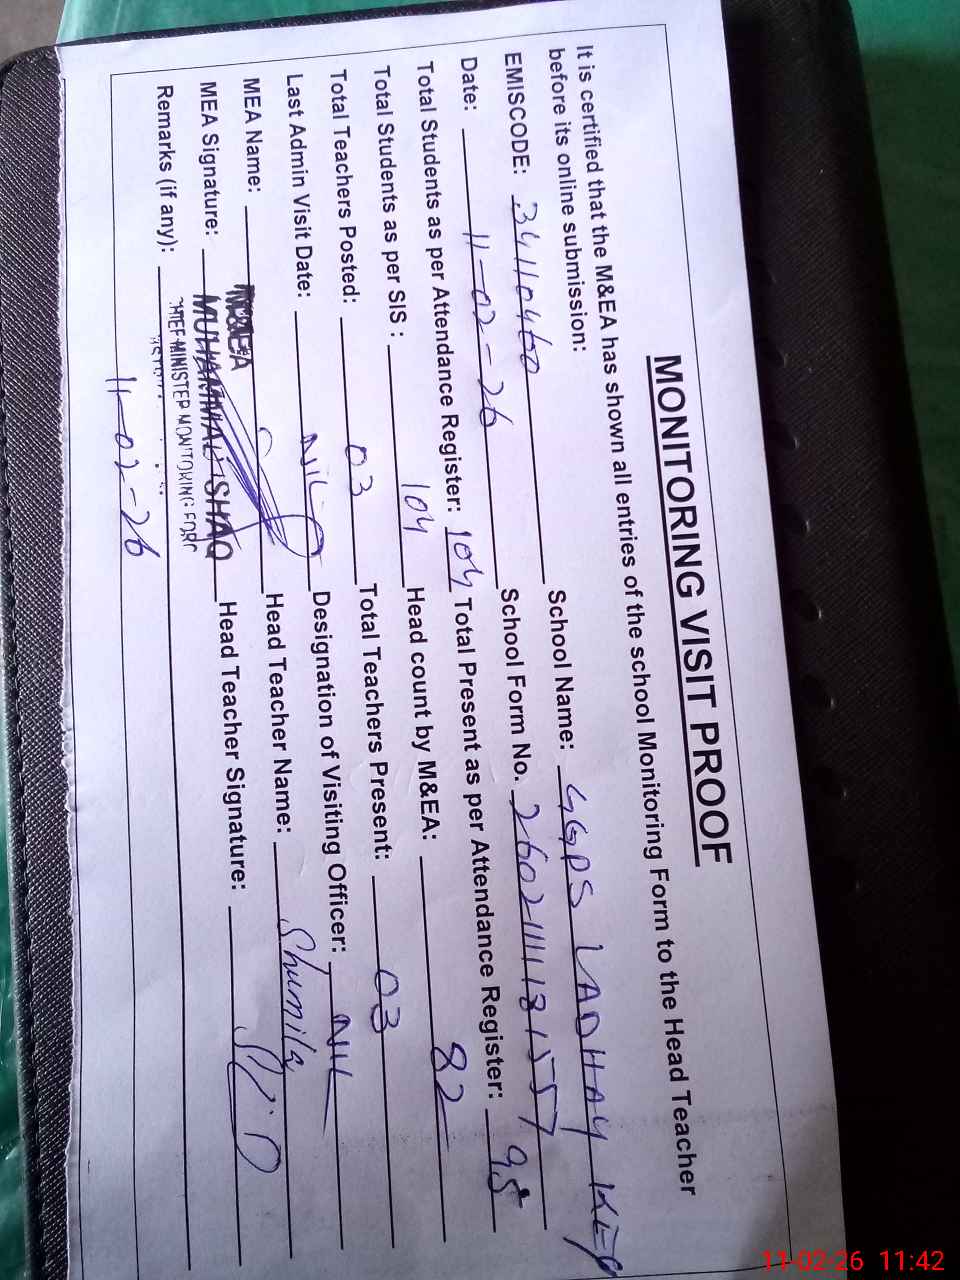 MONITORING VISIT PROOF
It is certified that the M&EA has shown all entries of the school Monitoring Form to the Head Teacher
before its online submission:
EMISCODE: 34110460 School Name: GGPS LADHAY
Date: 11-02-26 School Form No. 26021111
Total Students as per Attendance Register: 104 Total Present as per Attendance Register: 95
Total Students as per SIS : 104 Head count by M&EA: 82
Total Teachers Posted: 03 Total Teachers Present: 03
Last Admin Visit Date: NIL Designation of Visiting Officer: NIL
MEA Name: M&EA Head Teacher Name: Shumila
MEA Signature: MUHAMMAD ISHAQ Head Teacher Signature:
Remarks (if any): CHIEF MINISTER MONITORING FORC
11-02-26
11-02-26 11:42